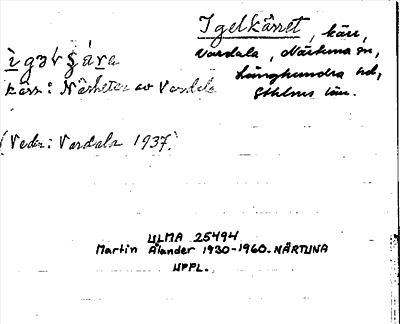 Igelkärret, kärr,
Vardala, Närtuna sn,
Långhundra hd,
Sthlms län.
ìgəlçára
kärr: Närheten av Vardala
(Veder: Vardala 1937.)
ULMA 25494
Martin Ålander 1930-1960. NÄRTUNA
UPPL.